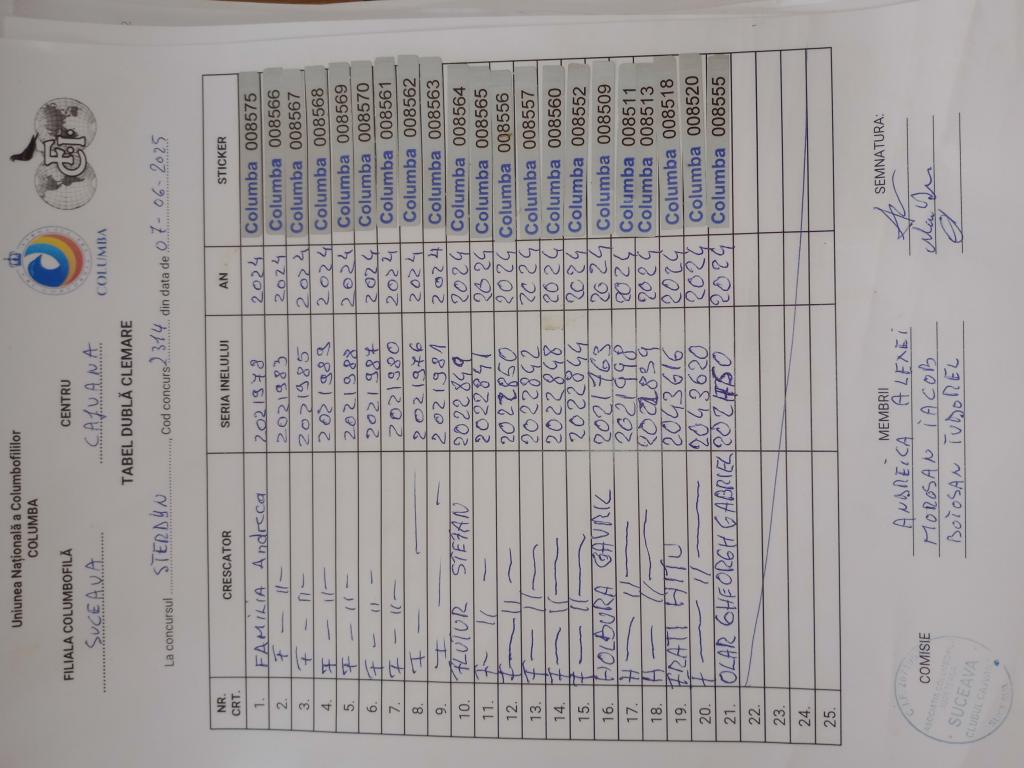 Uniunea Națională a Columbofililor
COLUMBA
COLUMBA
FILIALA COLUMBOFILĂ CENTRU
SUCEAVA CAJVANA
TABEL DUBLĂ CLEMARE
La concursul STERDYN, Cod concurs 2314 din data de 07-06-2025
NR. CRT. CRESCATOR SERIA INELULUI AN STICKER
1. FAMILIA Andreea 2021978 2024 Columba 008575
2. F — 11 — 2021983 2024 Columba 008566
3. F — 11 — 2021985 2024 Columba 008567
4. F — 11 — 2021989 2024 Columba 008568
5. F — 11 — 2021988 2024 Columba 008569
6. F — 11 — 2021987 2024 Columba 008570
7. F — 11 — 2021980 2024 Columba 008561
8. F — — 2021976 2024 Columba 008562
9. F — — 2021981 2024 Columba 008563
10. STEFAN 2022849 2024 Columba 008564
11. F — 11 — 2022841 2024 Columba 008565
12. F — 11 — 2022850 2024 Columba 008556
13. F — 11 — 2022842 2024 Columba 008557
14. F — 11 — 2022848 2024 Columba 008560
15. F — 11 — 2022844 2024 Columba 008552
16. HOLBURA GAVRIL 2021763 2024 Columba 008509
17. H — 11 — 2021998 2024 Columba 008511
18. H — 11 — 2024 Columba 008513
19. FRATI HITU 2043616 2024 Columba 008518
20. F — 11 — 2043620 2024 Columba 008520
21. OLAR GHEORGH GABRIEL 2024 Columba 008555
22.
23.
24.
25.
COMISIE MEMBRII SEMNATURA:
ANDREICA ALEXEI
MOROSAN IACOB
BOTOSAN TUDOREL
SUCEAVA